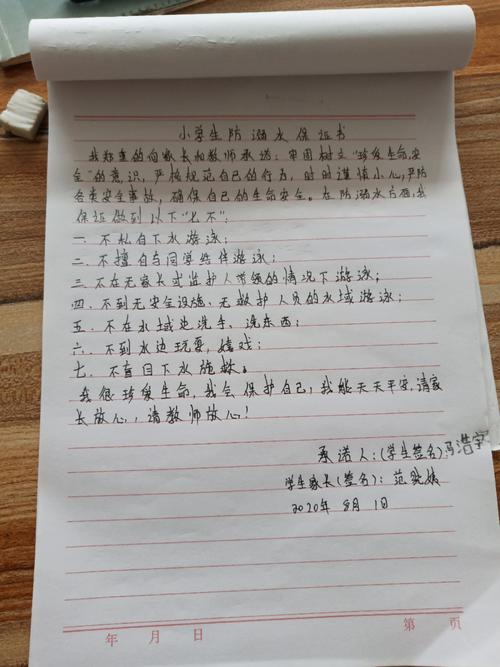 小学生防溺水保证书
我郑重的向家长和教师承诺：牢固树立"珍爱生命，安
全"的意识，严格规范自己的行为，时时谨慎小心，严防
各类安全事故，确保自己的生命安全。在防溺水方面，我
保证做到以下"七不"：
一、不私自下水游泳；
二、不擅自与同学结伴游泳；
三、不在无家长或监护人带领的情况下游泳；
四、不到无安全设施、无救护人员的水域游泳；
五、不在水域边洗手、洗东西；
六、不到水边玩耍、嬉戏；
七、不盲目下水施救。
我很珍爱生命，我会保护自己，我能天天平安，请家
长放心，请教师放心！
承诺人：(学生签名)冯浩宇
学生家长(签名)：范
2020年8月1日
年 月 日 第 页